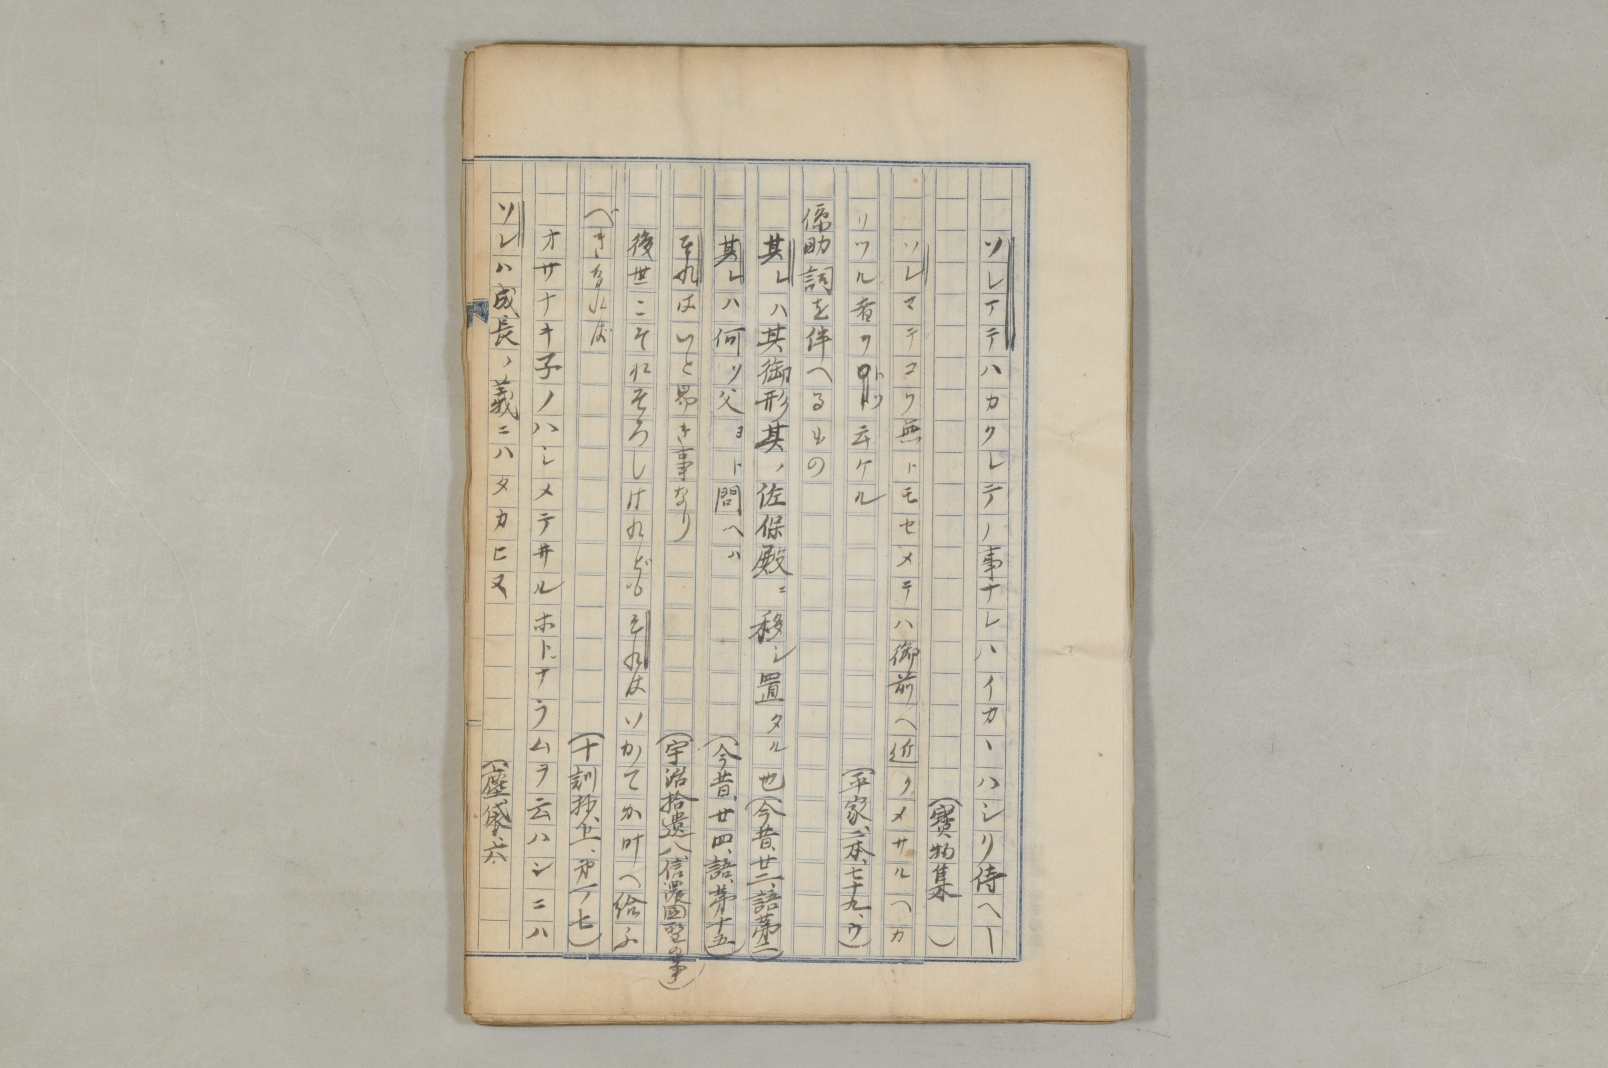 ソレアテハカクレテノ事ナレハイカヽハシリ侍ヘ
(寶物集)
ソレマテコワ無トモセメテハ御前ヘ近クメサルヘカ
リツル者ヲトツ云ケル
(平家、二本、七十九、ウ)
係助詞を伴へるもの
其レハ其御形其ノ佐保殿ニ移シ置タル也(今昔、廿二、語、第二)
其レハ何ソ父ヨト問ヘハ
(今昔、廿四、語、第十五)
それはいと易き事なり
(宇治拾遺八、信濃國聖の事)
後世こそおそろしけれどもそれはいかてか叶へ給ふ
べきなれば
(十訓抄、上、第一ノ七)
オサナキ子ノハシメテ井ルホトナラムヲ云ハンニハ
ソレハ成長ノ義ニハタカヒヌ
(塵袋、六